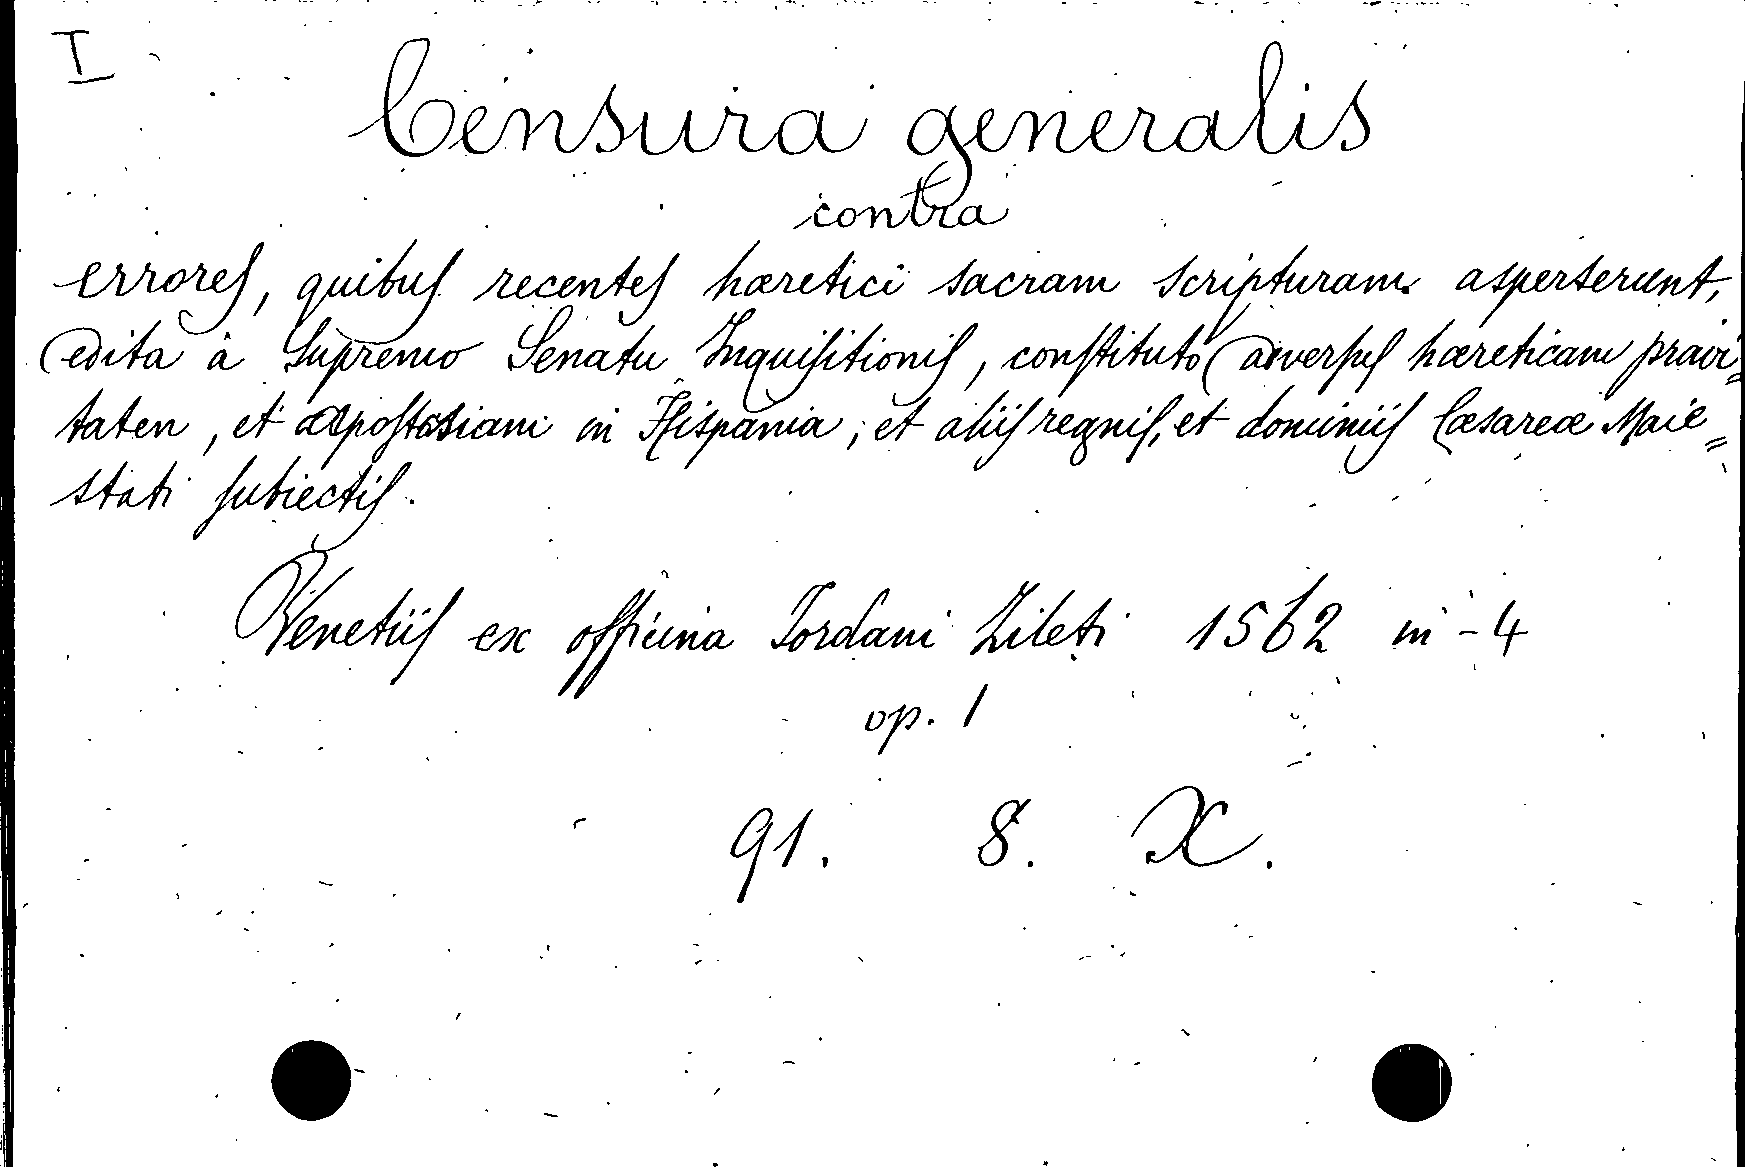 I
Censura generalis
contra
errores, quibus recentes hæretici sacram scripturam asperserunt,
edita à supremo Senatu Inquisitionis, constituto adversus hæreticam pravi=
taten, et apostasiam in Hispania, et aliis regnis, et dominiis Cæsareæ Maie=
stati subiectis.
Venetiis ex officina Iordani Zileti 1562 in-4
op. 1
91. 8. X.